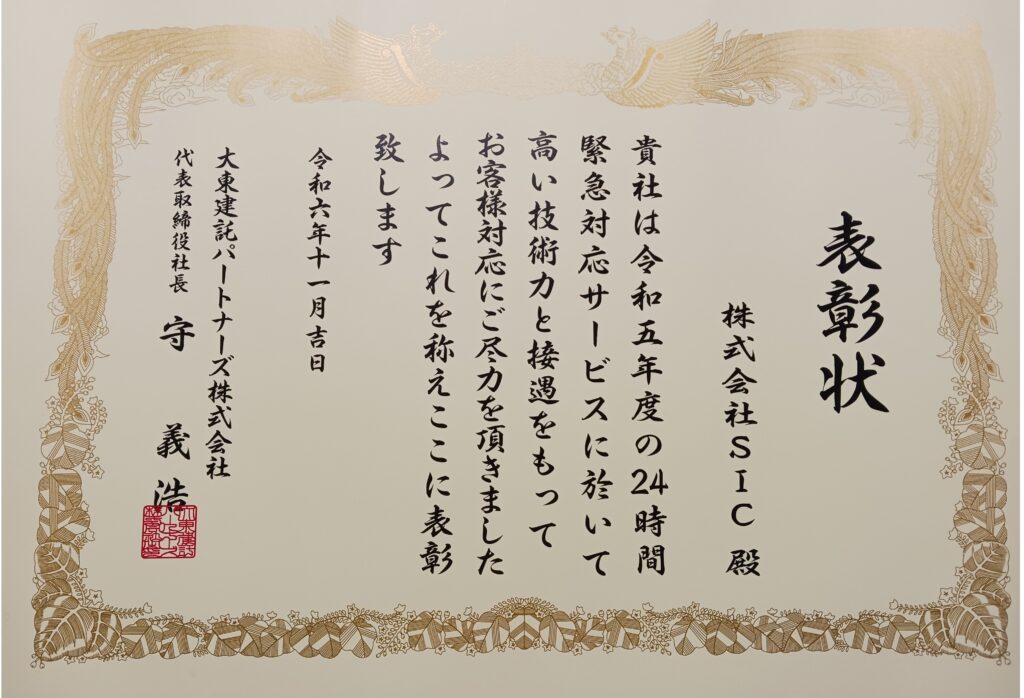 表彰状
株式会社SIC 殿
貴社は令和五年度の24時間
緊急対応サービスに於いて
高い技術力と接遇をもって
お客様対応にご尽力を頂きました
よってこれを称えここに表彰
致します
令和六年十一月吉日
大東建託パートナーズ株式会社
代表取締役社長 守 義浩